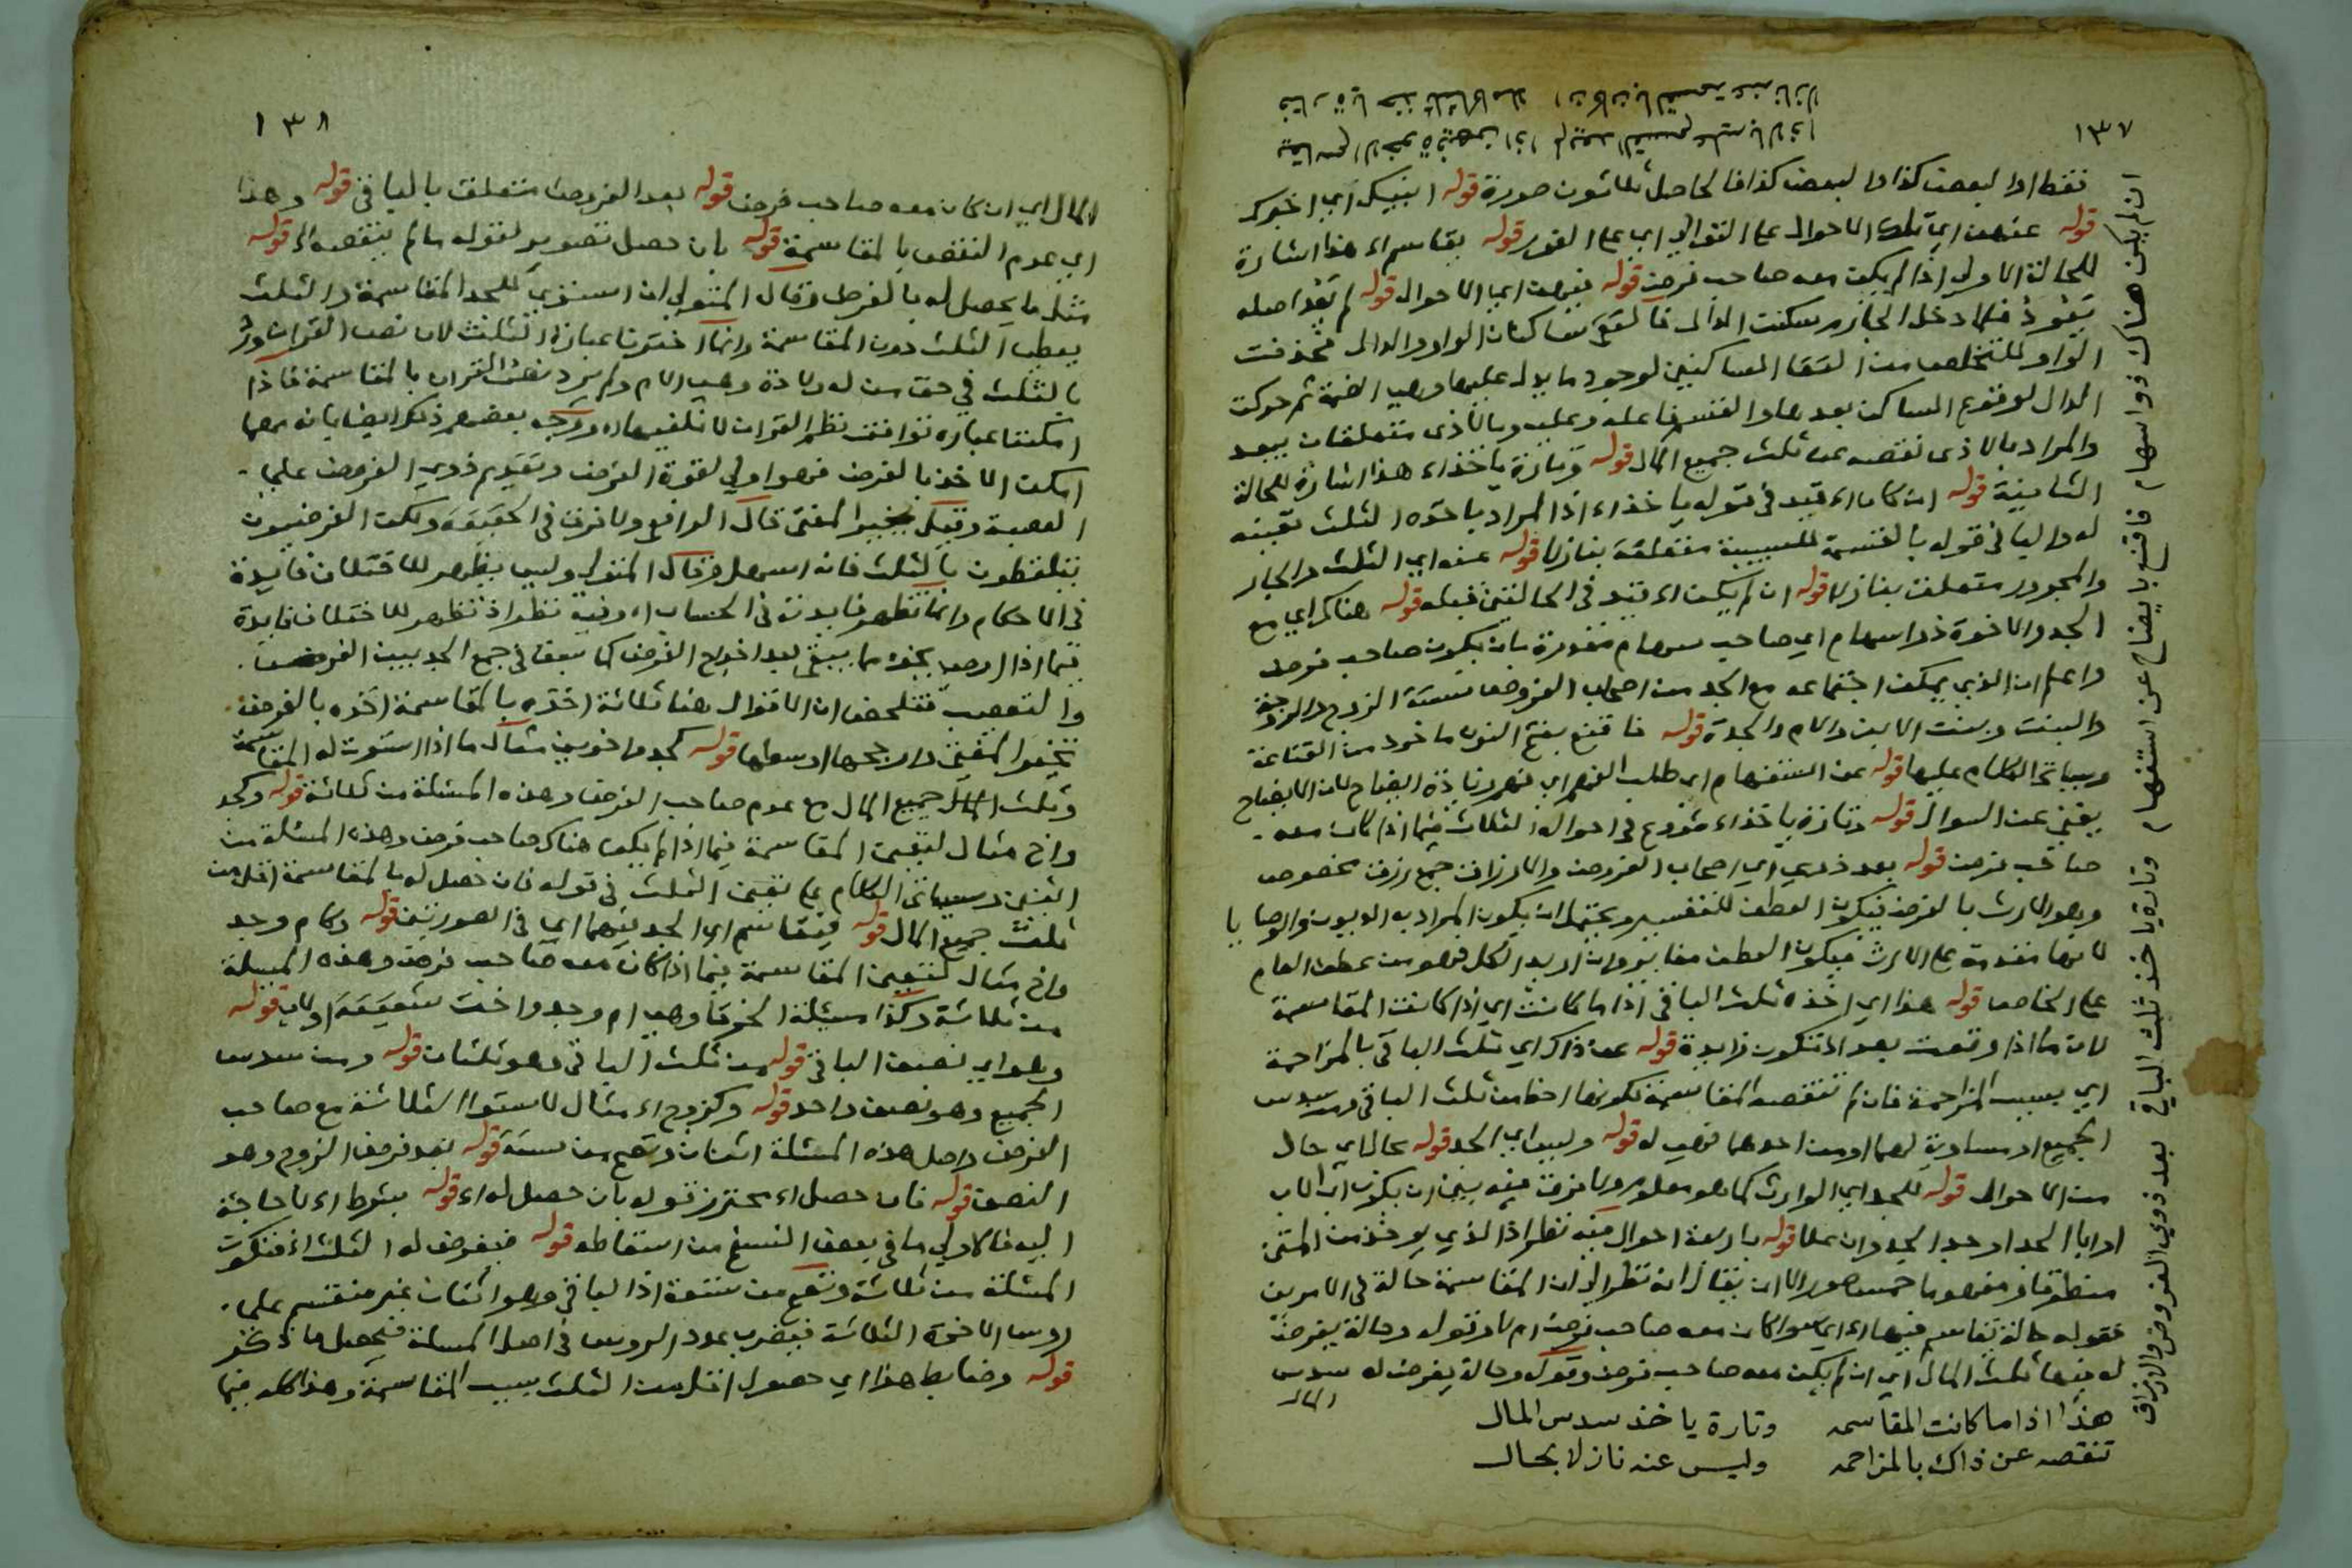 ١٣٧
يقاسم الاخوة فيهن اذا لم يعد القسم عليه بالاذا
فتارة ياخذ ثلثا كاملا ان كان بالقسمة عنه نازلا
فقط او لبعض كذا ولبعض كذا فالحاصل ثلاثون صورة قوله انبيك اي اخبرك
قوله عنهن اي تلك الاحوال على التوالي اي على الفور قوله يقاسم اه هذا اشارة
للحالة الاولى اذا لم يكن معه صاحب فرض قوله فيهن اي الاحوال قوله لم يعد اصله
يعود فلما دخل الجازم سكنت الدال فالتقى ساكنان الواو والدال فحذفت
الواو للتخلص من التقا الساكنين لوجود ما يدل عليها وهي الضمة ثم حركت
الدال لوقوع الساكن بعدها والقسم فاعله وعليه وبالاذى متعلقان بيعد
والمراد بالاذى نقصه عن ثلث جميع المال قوله وتارة ياخذ اه هذا اشارة للحالة
الثانية قوله ان كان اه قيد في قوله ياخذ اه اذ المراد ياخذه الثلث تعينه
له والبا في قوله بالقسمة للسببية متعلقة بنازلا قوله عنه اي الثلث والجار
والمجرور متعلق بنازلا قوله ان لم يكن اه قيد في الحالتين قبله قوله هناك اي مع
الجد والاخوة ذوا سهام اي صاحب سهام مقدرة بان يكون صاحب فرض
واعلم ان الذي يمكن اجتماعه مع الجد من اصحاب الفروض ستة الزوج والزوجة
والبنت وبنت الابن والام والجدة قوله فاقنع بفتح النون ماخوذ من القناعة
وسياتي الكلام عليها قوله عن استفهام اي طلب الفهم اي فهم زيادة ايضاح لان الايضاح
يغني عن السوال قوله وتارة ياخذ اه شروع في احواله الثلاث فيما اذا كان معه
صاحب فرض قوله بعد ذوي اي اصحاب الفروض والارزاق جمع رزق مخصوص
وهو الارث بالفرض فيكون العطف للتفسير ويحتمل ان يكون المراد به الديون والوصايا
لانها مقدمة على الارث فيكون العطف مغايرا وان اريد الكل فهو من عطف العام
على الخاص قوله هذا اي اخذه ثلث الباقي اذا ما كانت اي اذا كانت المقاسمة
لان ما اذا وقعت بعد اذ تكون زايدة قوله عن ذاك اي ثلث الباقي بالمزاحمة
اي بسبب المزاحمة فان لم تنقصه المقاسمة لكونها احظ من ثلث الباقي ومن سدس
الجميع او مساوية لهما او من احدهما فهي له قوله وليس اي الجد قوله بحال اي حال
من الاحوال قوله للجد اي الوارث كما هو معلوم ولا فرق فيه بين ان يكون اب الاب
او ابا الجد او جد الجد وان علا قوله باربعة احوال فيه نظر اذ الذي يوخذ من المتن
منطوقا ومفهوما خمس صور الا ان يقال انه نظر الى ان المقاسمة حالة في الامرين
فقوله حالة يقاسم فيها اه اي سوا كان معه صاحب فرض ام لا وقوله وحالة يفرض
له فيها ثلث المال اي ان لم يكن معه صاحب فرض وقوله وحالة يفرض له سدس
المال
هذا اذا ما كانت المقاسمه وتارة ياخذ سدس المال
تنقصه عن ذاك بالمزاحمه وليس عنه نازلا بحال
ان لم يكن هناك ذوا سهام فاقنع بايضاح عن استفهام وتارة ياخذ ثلث الباقي بعد ذوي الفروض والارزاق
١٣٨
المال اي ان كان معه صاحب فرض قوله بعد الفروض متعلق بالباقي قوله وهذا
اي عدم النقص بالمقاسمة قوله بان حصل تصوير لقوله ما لم ينقصه اه قوله
مثل ما يحصل له بالفرض وقال المتولي ان استوى للجد المقاسمة والثلث
يعطى الثلث دون المقاسمة وانما اخترنا عبارة الثلث لان نص القران ورد
بالثلث في حق من له ولادة وهي الام ولم يرد نص القران بالمقاسمة فاذا
امكننا عبارة توافق نظم القران لا نلغيها اه ووجه بعضهم ذلك ايضا بانه مهما
امكن الاخذ بالفرض فهو اولى لقوة الفرض وتقديم ذوي الفروض على
العصبة وقيل يخير المفتي قال الرافعي ولا فرق في الحقيقة ولكن الفرضيون
يتلفظون بالثلث فانه اسهل وقال المتولي وليس يظهر للاختلاف فايدة
في الاحكام وانما تظهر فايدته في الحساب اه وفيه نظر اذ تظهر للاختلاف فايدة
فيما اذا اوصى بجزء مما يبقى بعد اخراج الفرض كما سبق في جمع الجد بين الفرض
والتعصيب فتلخص ان الاقوال هنا ثلاثة اخذه بالمقاسمة اخذه بالفرض
تخير المفتي وارجحها اوسطها قوله كجد واخوين مثال ما اذا استوت له المقاسمة
وثلث المال جميع المال مع عدم صاحب الفرض وهذه المسئلة من ثلاثة قوله وكجد
واخ مثال لتعين المقاسمة فيما اذا لم يكن هناك صاحب فرض وهذه المسئلة من
اثنين وسياتي الكلام على تعين الثلث في قوله فان حصل له بالمقاسمة اقل من
ثلث جميع المال قوله فيقاسم اي الجد فيهما اي في الصورتين قوله وكام وجد
واخ مثال لتعين المقاسمة فيما اذا كان معه صاحب فرض وهذه المسئلة
من ثلاثة وكذا مسئلة الخرقا وهي ام وجد واخت شقيقة او لاب قوله
وهو اي نصف الباقي قوله من ثلث الباقي وهو ثلثان قوله ومن سدس
الجميع وهو نصف واحد قوله وكزوج اه مثال لاستوا الثلاثة مع صاحب
الفرض واصل هذه المسئلة اثنان وتصح من ستة قوله بعد فرض الزوج وهو
النصف قوله فان حصل اه محترز قوله بان حصل له اه قوله بشرط اه لا حاجة
اليه فالاولى ما في بعض النسخ من اسقاطه قوله فيفرض له الثلث اه فتكون
المسئلة من ثلاثة وتصح من تسعة اذ الباقي وهو اثنان غير منقسم على
روس الاخوة الثلاثة فيضرب عدد الروس في اصل المسئلة فيحصل ما ذكر
قوله وضابط هذا اي حصول اقل من الثلث بسبب المقاسمة وهذا كله فيما